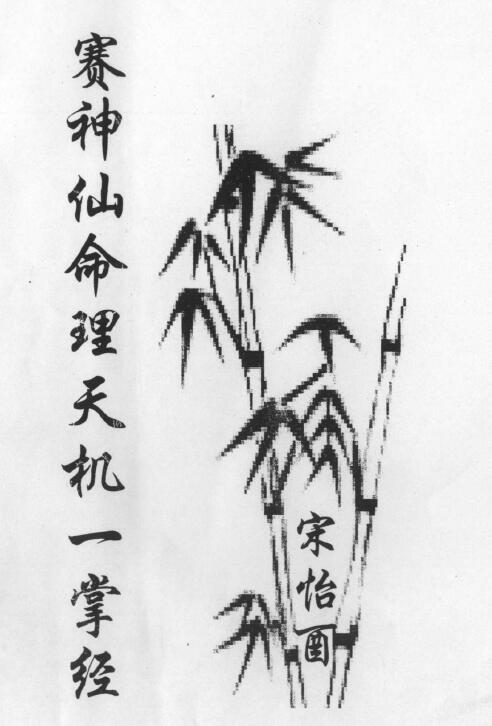 赛神仙命理天机一掌经
宋怡